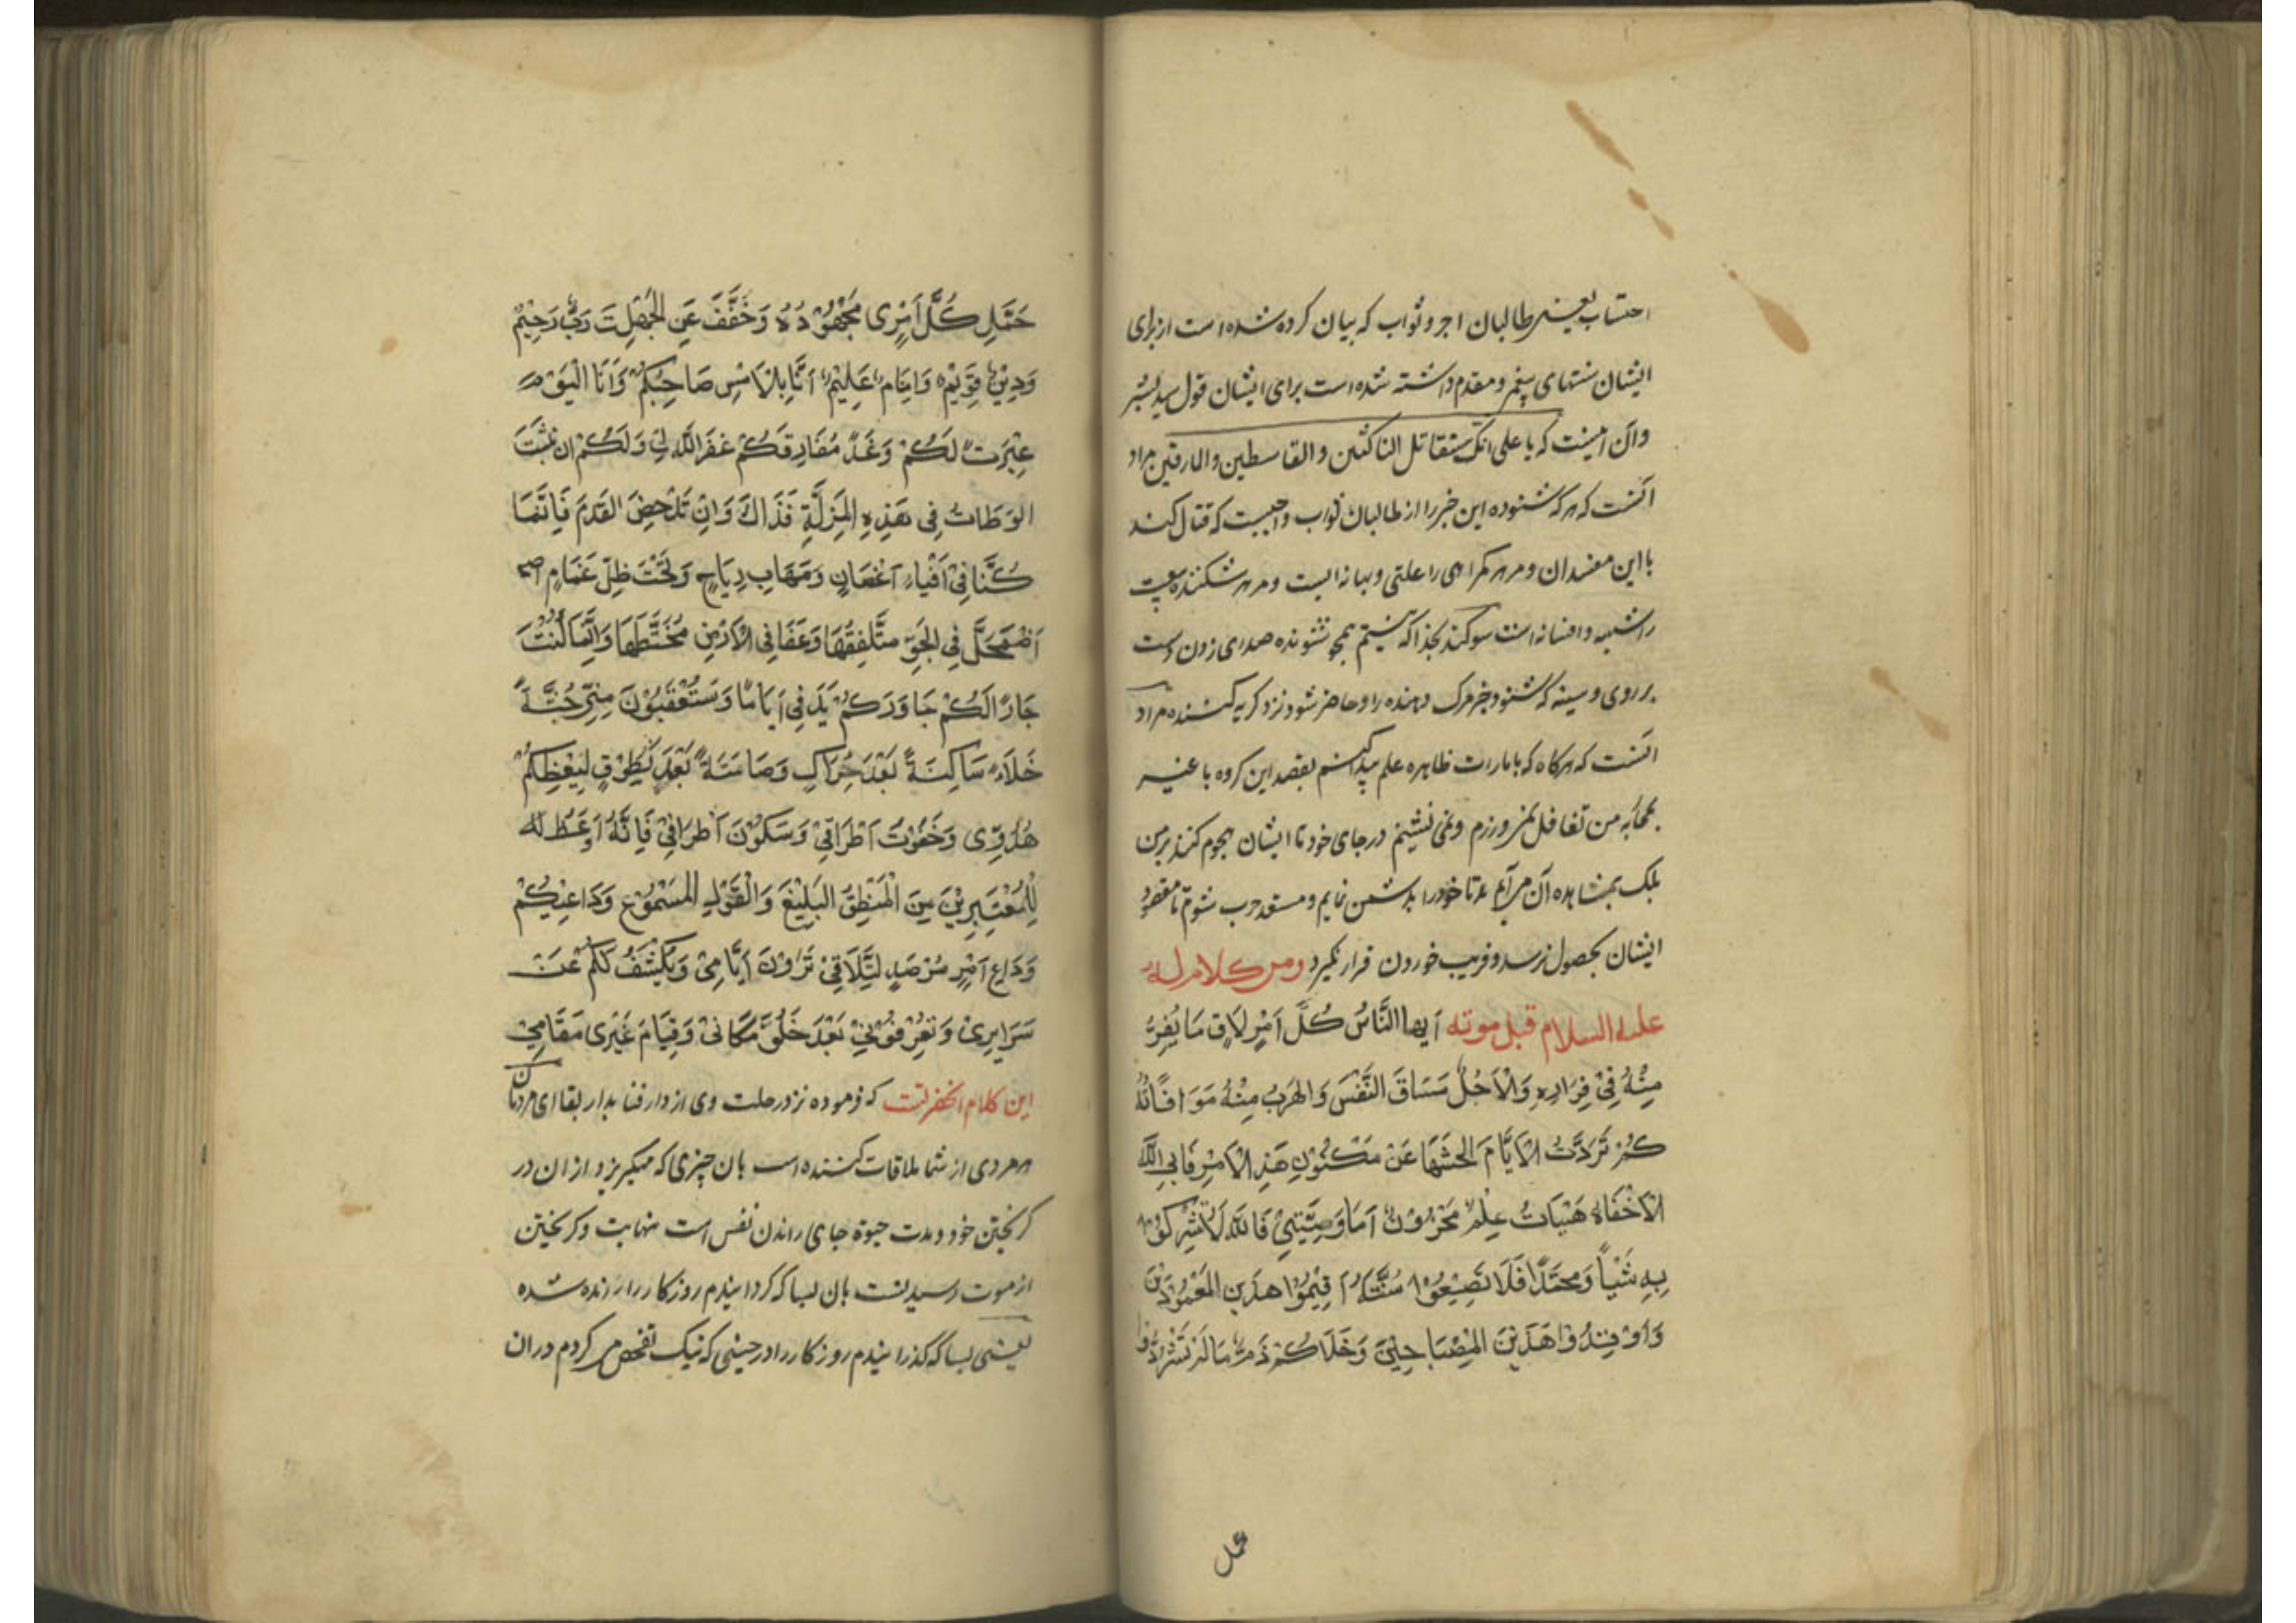 احتساب یعنی طالبان اجر و ثواب که بیان کرده شده است از برای
ایشان سنتهای پیغمبر و مقدم داشته شده است برای ایشان قول سید بشر
وآن اینست که یا علی انک ستقاتل الناکثین والقاسطین والمارقین مراد
آنست که هر که شنوده این خبر را از طالبان ثواب واجبست که قتال کند
با این مفسدان و مر هر گمراهی را علتی و بهانه ایست و مر هر شکننده بیعت
را شبهه و افسانه است سوکند بخدا که نیستم همچو شنونده صدای زدن دست
بر روی و سینه که شنود خبر مرک دهنده را و حاضر شود نزد کریه کننده مراد
آنست که هرکاه که بامارات ظاهره علم پیدا کنم بقصد این کروه باغیه
بمحاربه من تغافل نمی ورزم و نمی نشینم در جای خود تا ایشان هجوم کنند بر من
بلک بمشاهده آن خود را بدشمن نمایم و مستعد حرب شوم تا مقصود
ایشان بحصول نرسد و فریب خوردن قرار نگیرد ومن کلام له
علیه السلام قبل موته اَیها النَّاسُ کُلّ اَمْرٍ لَاقٍ مَا یُفِرُّ
مِنْهُ فِیْ فِرَارِهِ وَالْاَجَلُ مَسَاقَ النَّفْسَ وَالهَرَبُ مِنْهُ مَوَافَاتُهُ
کَمْ تَرَدَّتُ الْاَیَّامَ الحثهَا عَنْ مَکْنُوْنِ هَذِ الْاَمْرِ فَابِیَ اللّٰه
الْاَخْفَاهُ هَیْهَاتُ عِلْمٌ مَخْزُوْنٌ اَمَا وَصِیَّتِیْ فَاللّٰهَ لَا تُشْرِکُوْا
بِهِ شَیْاً وَمحَمّداً فَلَا تَضِیْعُوْا سُنَّتَهُ اَقِیْمُوْا هذَینِ العَمُوْدَیْنَ
وَاَوْقِدُوْا هَذَیْنَ المِصْبَاحِیْنَ وَخَلَاکُمْ ذَمٌّ مَا لَمْ تَشْرُدُوْا
حمل
حَمَّلِ کُلَّ اَمْرِی مَجْهُوْدُهُ وَخَفَّفَ عَنِ الجَهْلَةِ رَبٌّ رَحِیْمٌ
وَدِیْنٌ قَوِیْمٌ وَاِمَامٌ عَلِیْمٌ اَنَا بِالْاَمْسِ صَاحِبُکُمْ وَاَنَا الْیَوْمَ
عِبْرَتٌ لَکُمْ وَغَداً مُفَارِقکُمْ غفَرَ اللّٰه لِی وَلَکُمْ ان تَثْبَتَ
الوَطَاتُ فِی هَذِهِ المَزِلَّةِ فَذَاکَ وَاِنْ تَدْحَضِ القَدَمَ فَاِنَّمَا
کُنَّا فِیْ اَفْیَاءِ اَغْصَانٍ وَمَهَابِ رِیَاحٍ وَتَحْتَ ظِلّ غَمَامٍ
اَضْمَحَلَّ فِی الجَوِّ مُتَلَفِقُهَا وَعَفَا فِی الْاَرْضِ مُخَتَّطَهَا وَاِنَّمَا کُنْتُ
جَارًا لَکُمْ جَاوَرَکُمْ بَدَنِی اَیَامًا وَسَتُعْقَبُوْنَ مِنِّی جُثَّةً
خَلَاءً سَاکِنَةً بَعْدَ حِرَاکٍ وَصَامِتَةً بَعْدَ نُطُوْقٍ لِیَعِظَکُمْ
هُدُوِّی وَخَفُوْتَ اَطْرَاقِیْ وَسَکُوْنَ اَطْرَافِیْ فَاِنَّهُ اَوْعَظُ
لِلْمُعْتَبِرِیْنَ مِنَ الْمَنْطِقُ البَلِیْغَ وَالْقَوْلِ المَسْمُوْعِ وَدَاعِیْکُمْ
وَدَاعِ اَمْرٍ مُرْصَدٍ لِتَّلَاقِیْ تَرَوْنَ اَیَّامِیْ وَیَکْشَفُ لَکُمْ عَنْ
سَرَایِرِیْ وَتَعْرِفُوْنِیْ بَعْدَ خَلُوِّ مَکَانِیْ وَقِیَامَ غَیْرِی مَقَامِیْ
این کلام انحضرتست که فرموده نزد رحلت وی از دار فنا بدار بقا ای مردمان
هر مردی از شما ملاقات کننده است بان چیزی که میکریزد از ان در
کریختن خود و مدت حیوة جای راندن نفس است بنهایت و کریختن
از موت رسیدنست بان بسا که کردانیدم روزکار را رانده شده
یعنی بسا که کذرانیدم روزکار را در حینی که نیک تفحص می کردم در ان